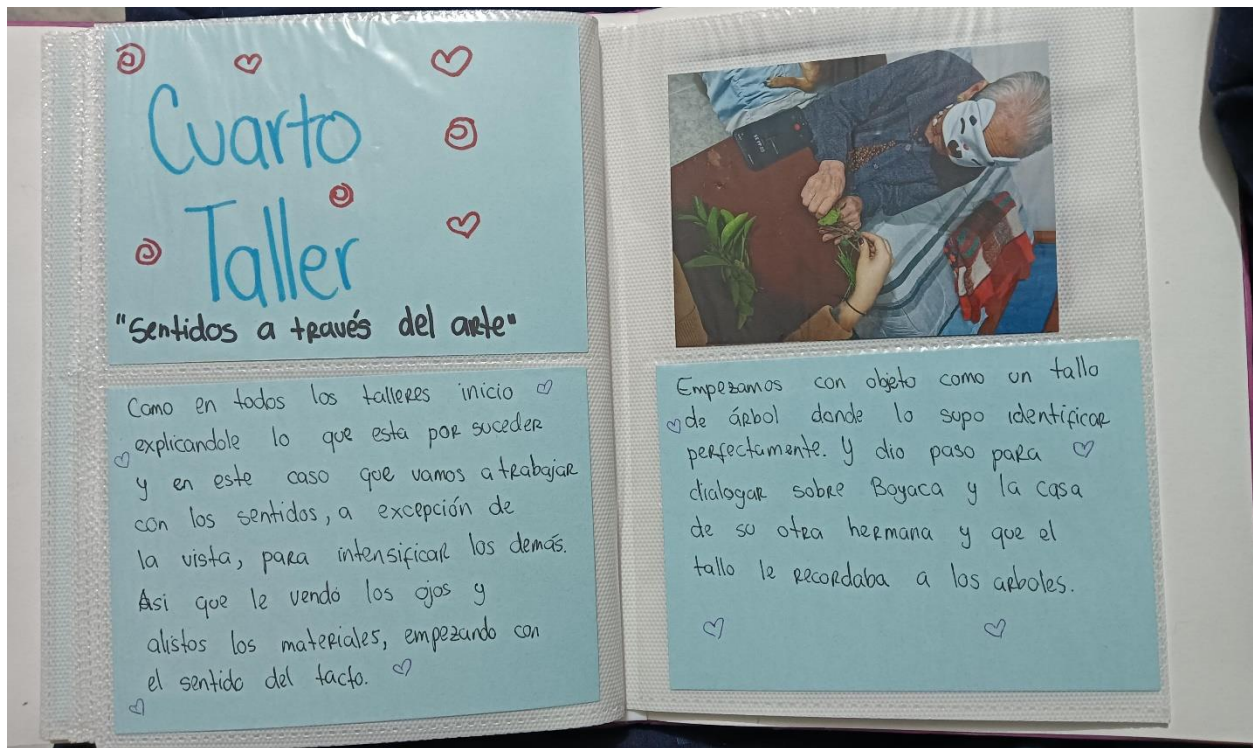 Cuarto
Taller
"Sentidos a través del arte"
Como en todos los talleres inicio
explicandole lo que esta por suceder
y en este caso que vamos a trabajar
con los sentidos, a excepción de
la vista, para intensificar los demás.
Asi que le vendo los ojos y
alistos los materiales, empezando con
el sentido del tacto.
Empezamos con objeto como un tallo
de árbol donde lo supo identificar
perfectamente. Y dio paso para
dialogar sobre Boyaca y la casa
de su otra hermana y que el
tallo le recordaba a los arboles.